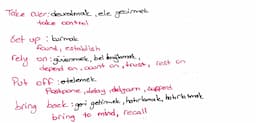 Take over: devralmak, ele geçirmek
take control
Set up : kurmak
found, establish
rely on : güvenmek, bel bağlamak,
depend on, count on, trust, rest on
Put off : ertelemek
Postpone, delay, adjourn, suspend
bring back : geri getirmek, hatırlamak, hatırlatmak
bring to mind, recall